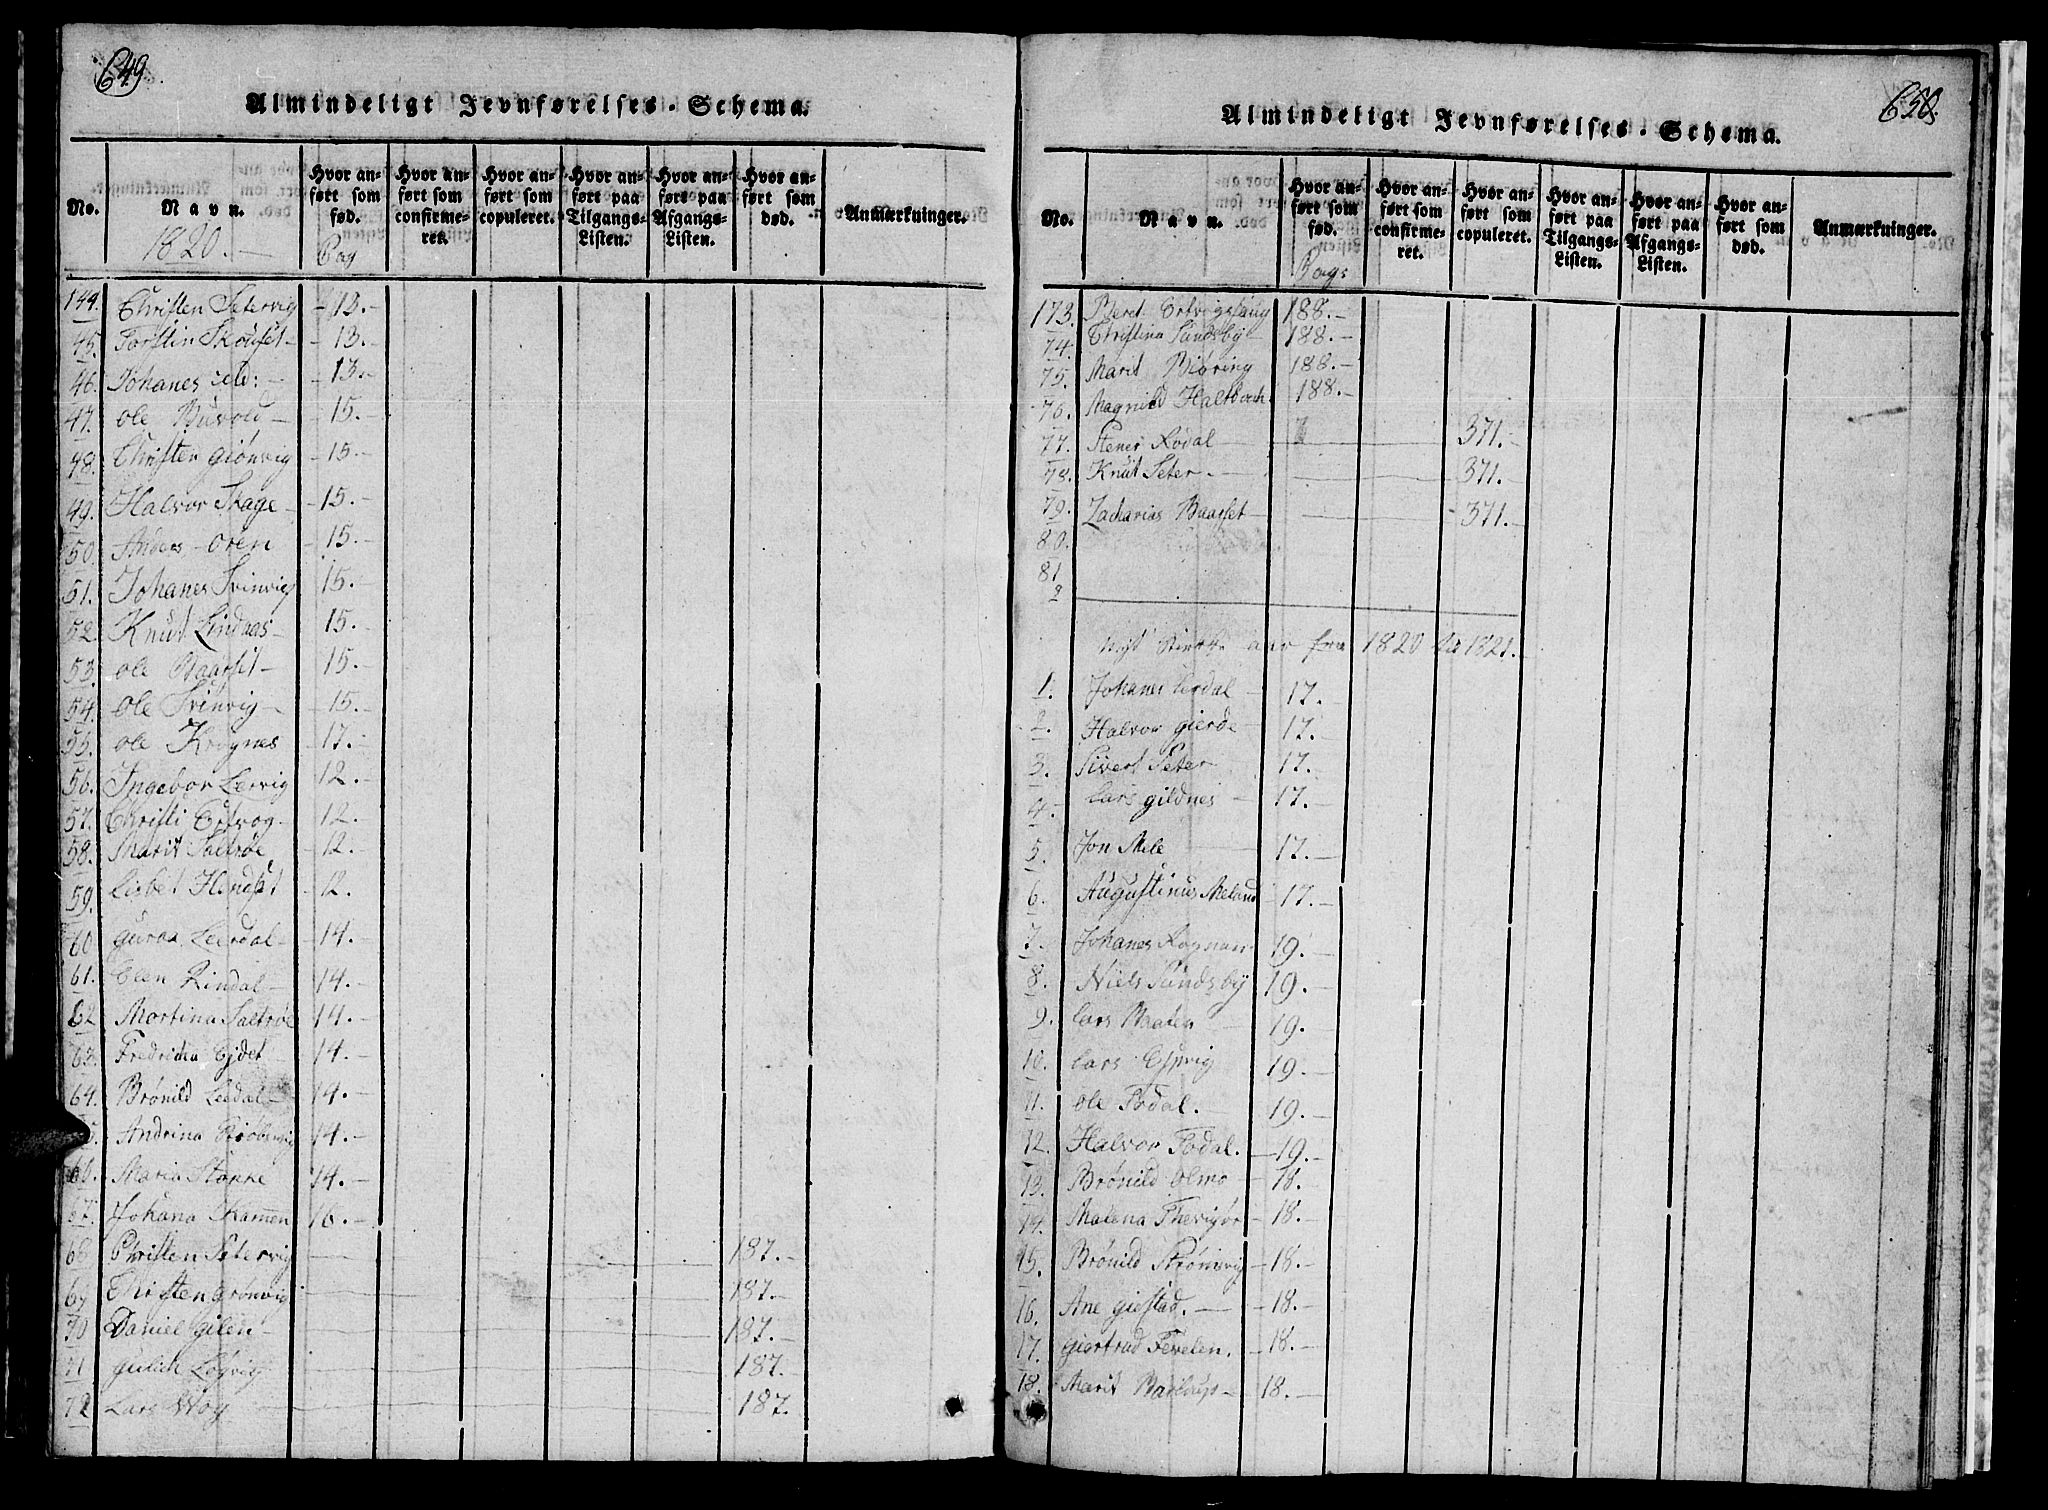 649
Almindeligt Jevnførelses-Schema.
No.
Navn.
1820.
Hvor anført som fød.
Pag
Hvor anført som confirmeret.
Hvor anført som copuleret.
Hvor anført paa Tilgangs-Listen.
Hvor anført paa Afgangs-Listen.
Hvor anført som død.
Anmærkninger.
144. Christen Setervig 13.
45. Torstin Skouset 13.
46. Johanes 13.
47. ole Buvold 15.
48. Christen giönvig 15.
49. Halvor Skage 15.
50. Anders Oren 15.
51. Johanes Svinvig 15.
52. Knut Lindaas 15.
53. ole Baarset 15.
54. Ole Svinvig 15.
55. ole Krognes 17.
56. Ingebor Lervig 12.
57. Christi Estvog 12.
58. Marit Saltrøe 12.
59. Lisbet Hendset 12.
60 guraa Leerdal 14.
61. Elen Rindal 14.
62 Martina Saltrøe 14.
63. Fredricka Ejdet 14.
64. Brönild Leedal 14.
65. Andrina 14.
66. Maria Stokke 14.
67. Johana Kamen 16.
68 Christen Setervig 187.
69 Christen grönvig 187.
70 Daniel gilen 187.
71 gulich Løgvig 187.
72 Lars Vog 187.
650.
Almindeligt Jevnførelses-Schema.
No.
Navn.
Hvor anført som fød.
Pag:
Hvor anført som confirmeret.
Hvor anført som copuleret.
Hvor anført paa Tilgangs-Listen.
Hvor anført paa Afgangs-Listen.
Hvor anført som død.
Anmærkninger.
173. Beret 188.
74. Christina Sundsbÿ 188.
75. Marit Biøring 188.
76. Magnild Haltbach 188.
77. Stener Rødal 371.
78. Knut Seter 371.
79. Zacharias Baarset 371.
80.
81
2
aar fra 1820 til 1821.
1. Johanes Lerdal 17.
2. Halvor gierde 17.
3. Sivert Seter 17.
4. Lars gildnes 17.
5. Jon Mele 17.
6. Augustinus Meland 17.
7. Johanes Rognan 19.
8. Niels Sundsbÿ 19.
9. Lars Vaaten 19.
10. Lars Espvig 19.
11. ole Todal. 19.
12. Halvor Todal. 19.
13. Brönild Olmo 18.
14. Malena 18.
15. Brönild Strömsvig 18.
16. Ane giestad. 18.
17. giertrud Fevelen. 18.
18. Marit 18.